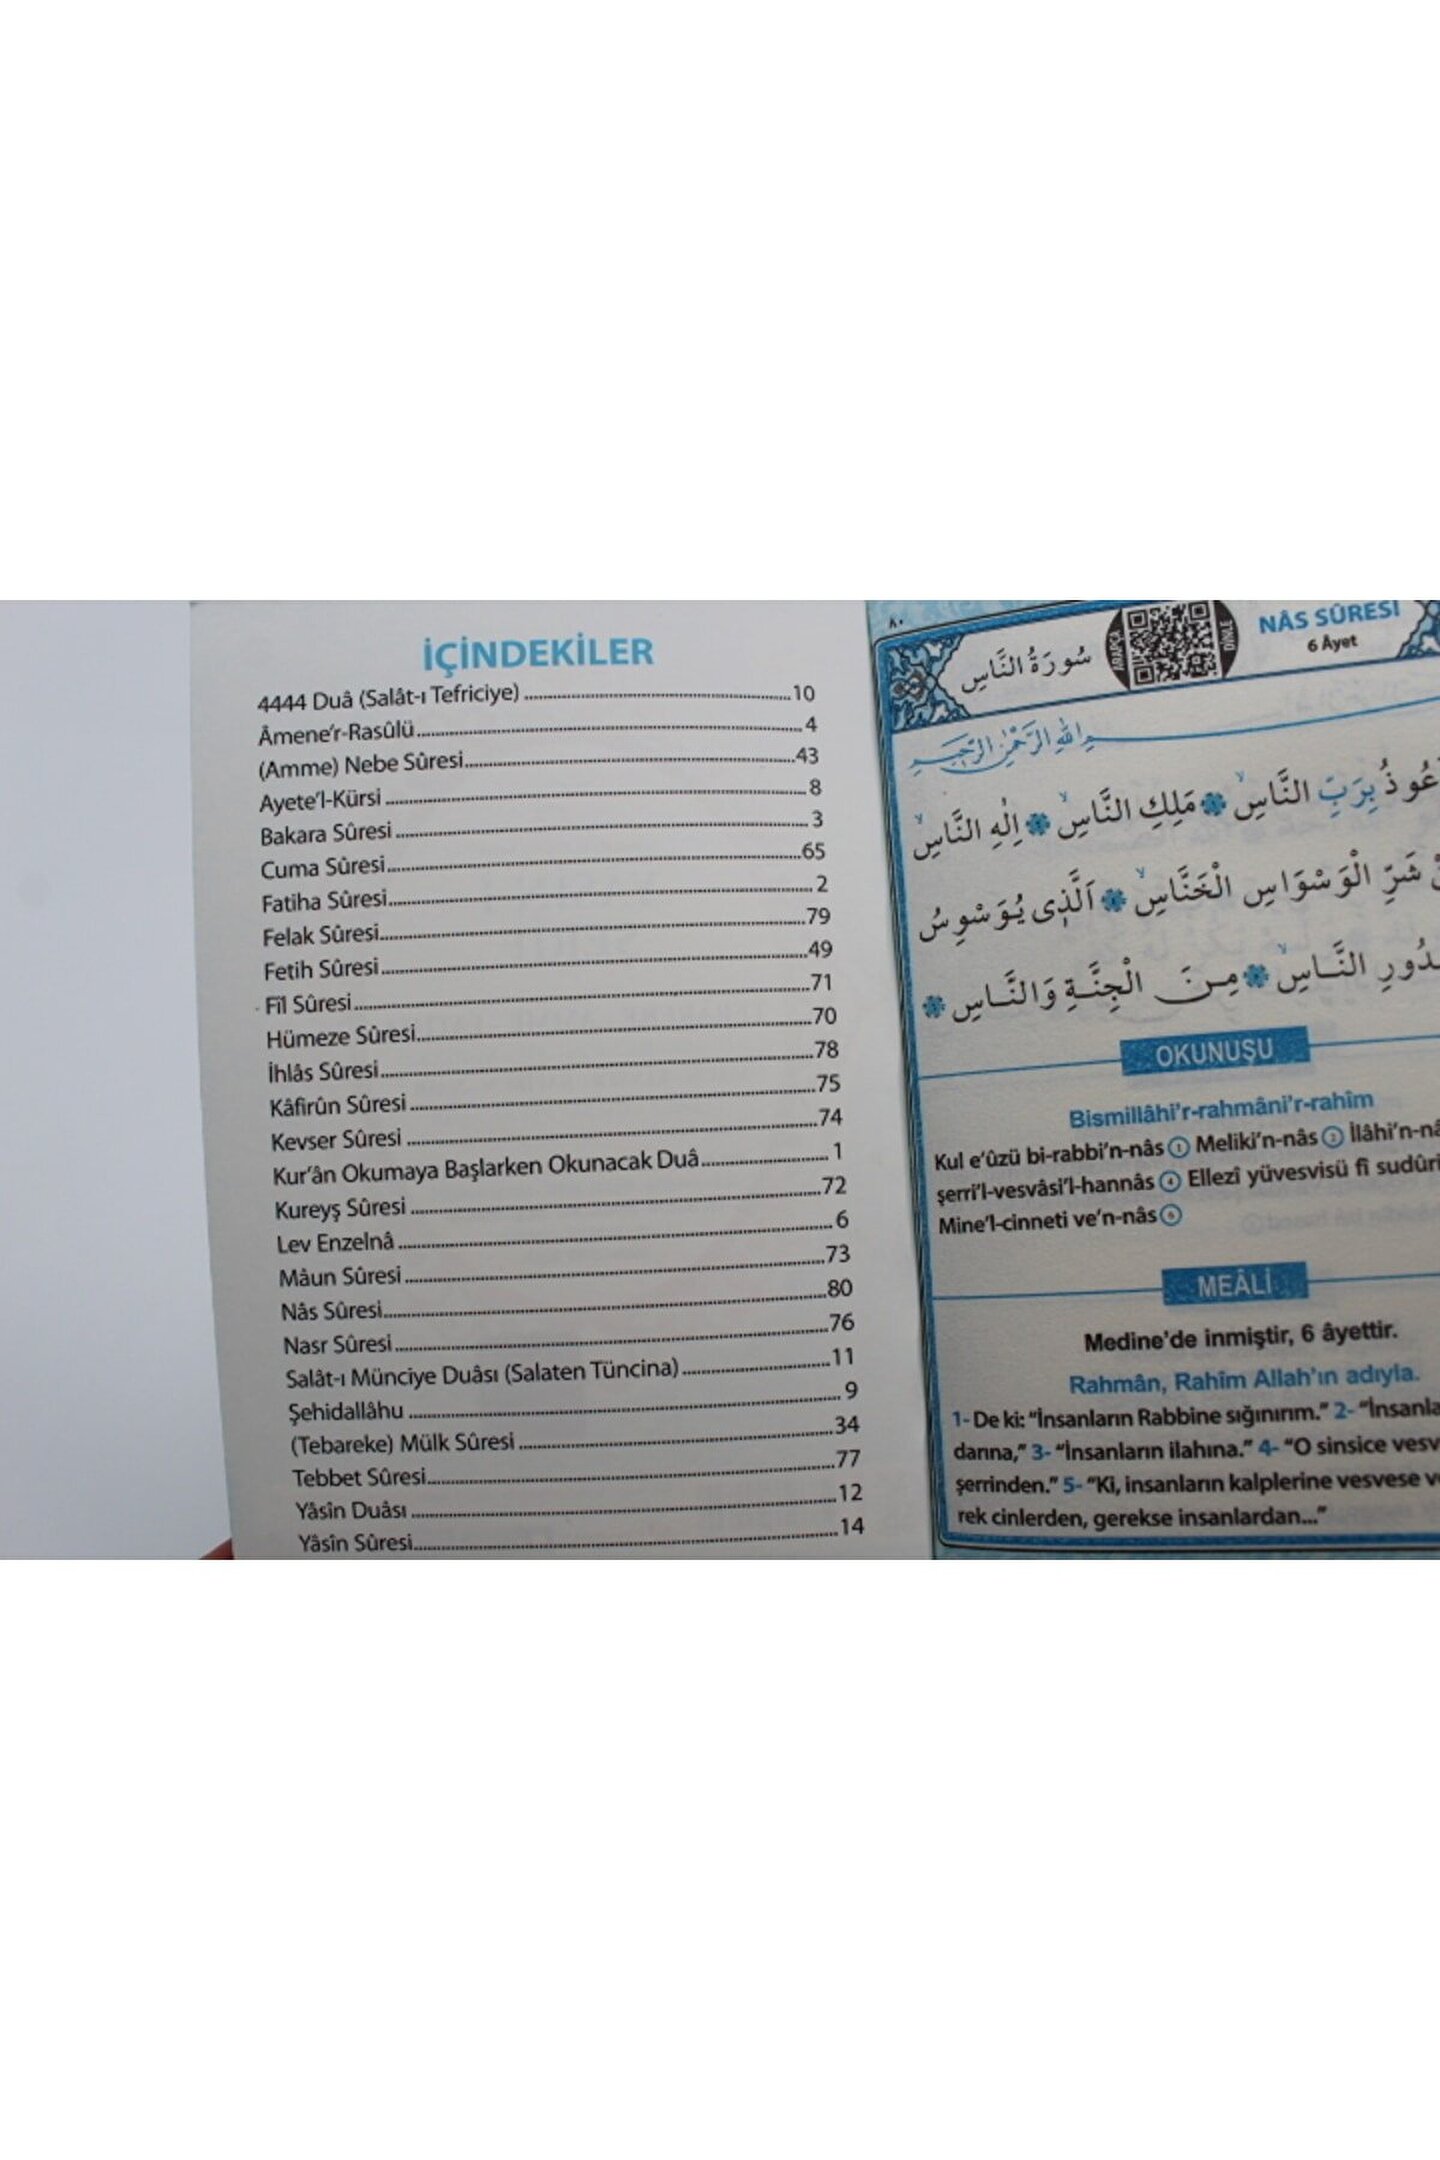 İÇİNDEKİLER
4444 Duâ (Salât-ı Tefriciye) 10
Âmene’r-Rasûlü 4
(Amme) Nebe Sûresi 43
Ayete’l-Kürsi 8
Bakara Sûresi 3
Cuma Sûresi 65
Fatiha Sûresi 2
Felak Sûresi 79
Fetih Sûresi 49
Fîl Sûresi 71
Hümeze Sûresi 70
İhlâs Sûresi 78
Kâfirûn Sûresi 75
Kevser Sûresi 74
Kur’ân Okumaya Başlarken Okunacak Duâ 1
Kureyş Sûresi 72
Lev Enzelnâ 6
Mâun Sûresi 73
Nâs Sûresi 80
Nasr Sûresi 76
Salât-ı Münciye Duâsı (Salaten Tüncina) 11
Şehidallâhu 9
(Tebareke) Mülk Sûresi 34
Tebbet Sûresi 77
Yâsîn Duâsı 12
Yâsîn Sûresi 14
٨٠
سُورَةُ النَّاسِ
ARAPÇA
DİNLE
NÂS SÛRESİ
6 Âyet
اللهِ الرَّحْمٰنِ الرَّحِيمِ
بِرَبِّ النَّاسِۙ مَلِكِ النَّاسِۙ اِلٰهِ النَّاسِۙ
شَرِّ الْوَسْوَاسِ الْخَنَّاسِۙ اَلَّذٖى يُوَسْوِسُ
النَّاسِۙ مِنَ الْجِنَّةِ وَالنَّاسِ
OKUNUŞU
Bismillâhi’r-rahmâni’r-rahîm
Kul e’ûzü bi-rabbi’n-nâs 1 Meliki’n-nâs 2 İlâhi’n-nâ
şerri’l-vesvâsi’l-hannâs 4 Ellezî yüvesvisü fî sudûri
Mine’l-cinneti ve’n-nâs 6
MEÂLİ
Medine’de inmiştir, 6 âyettir.
Rahmân, Rahîm Allah’ın adıyla.
1- De ki: “İnsanların Rabbine sığınırım.” 2- “İnsanla
darına,” 3- “İnsanların ilahına.” 4- “O sinsice vesv
şerrinden.” 5- “Ki, insanların kalplerine vesvese v
rek cinlerden, gerekse insanlardan...”